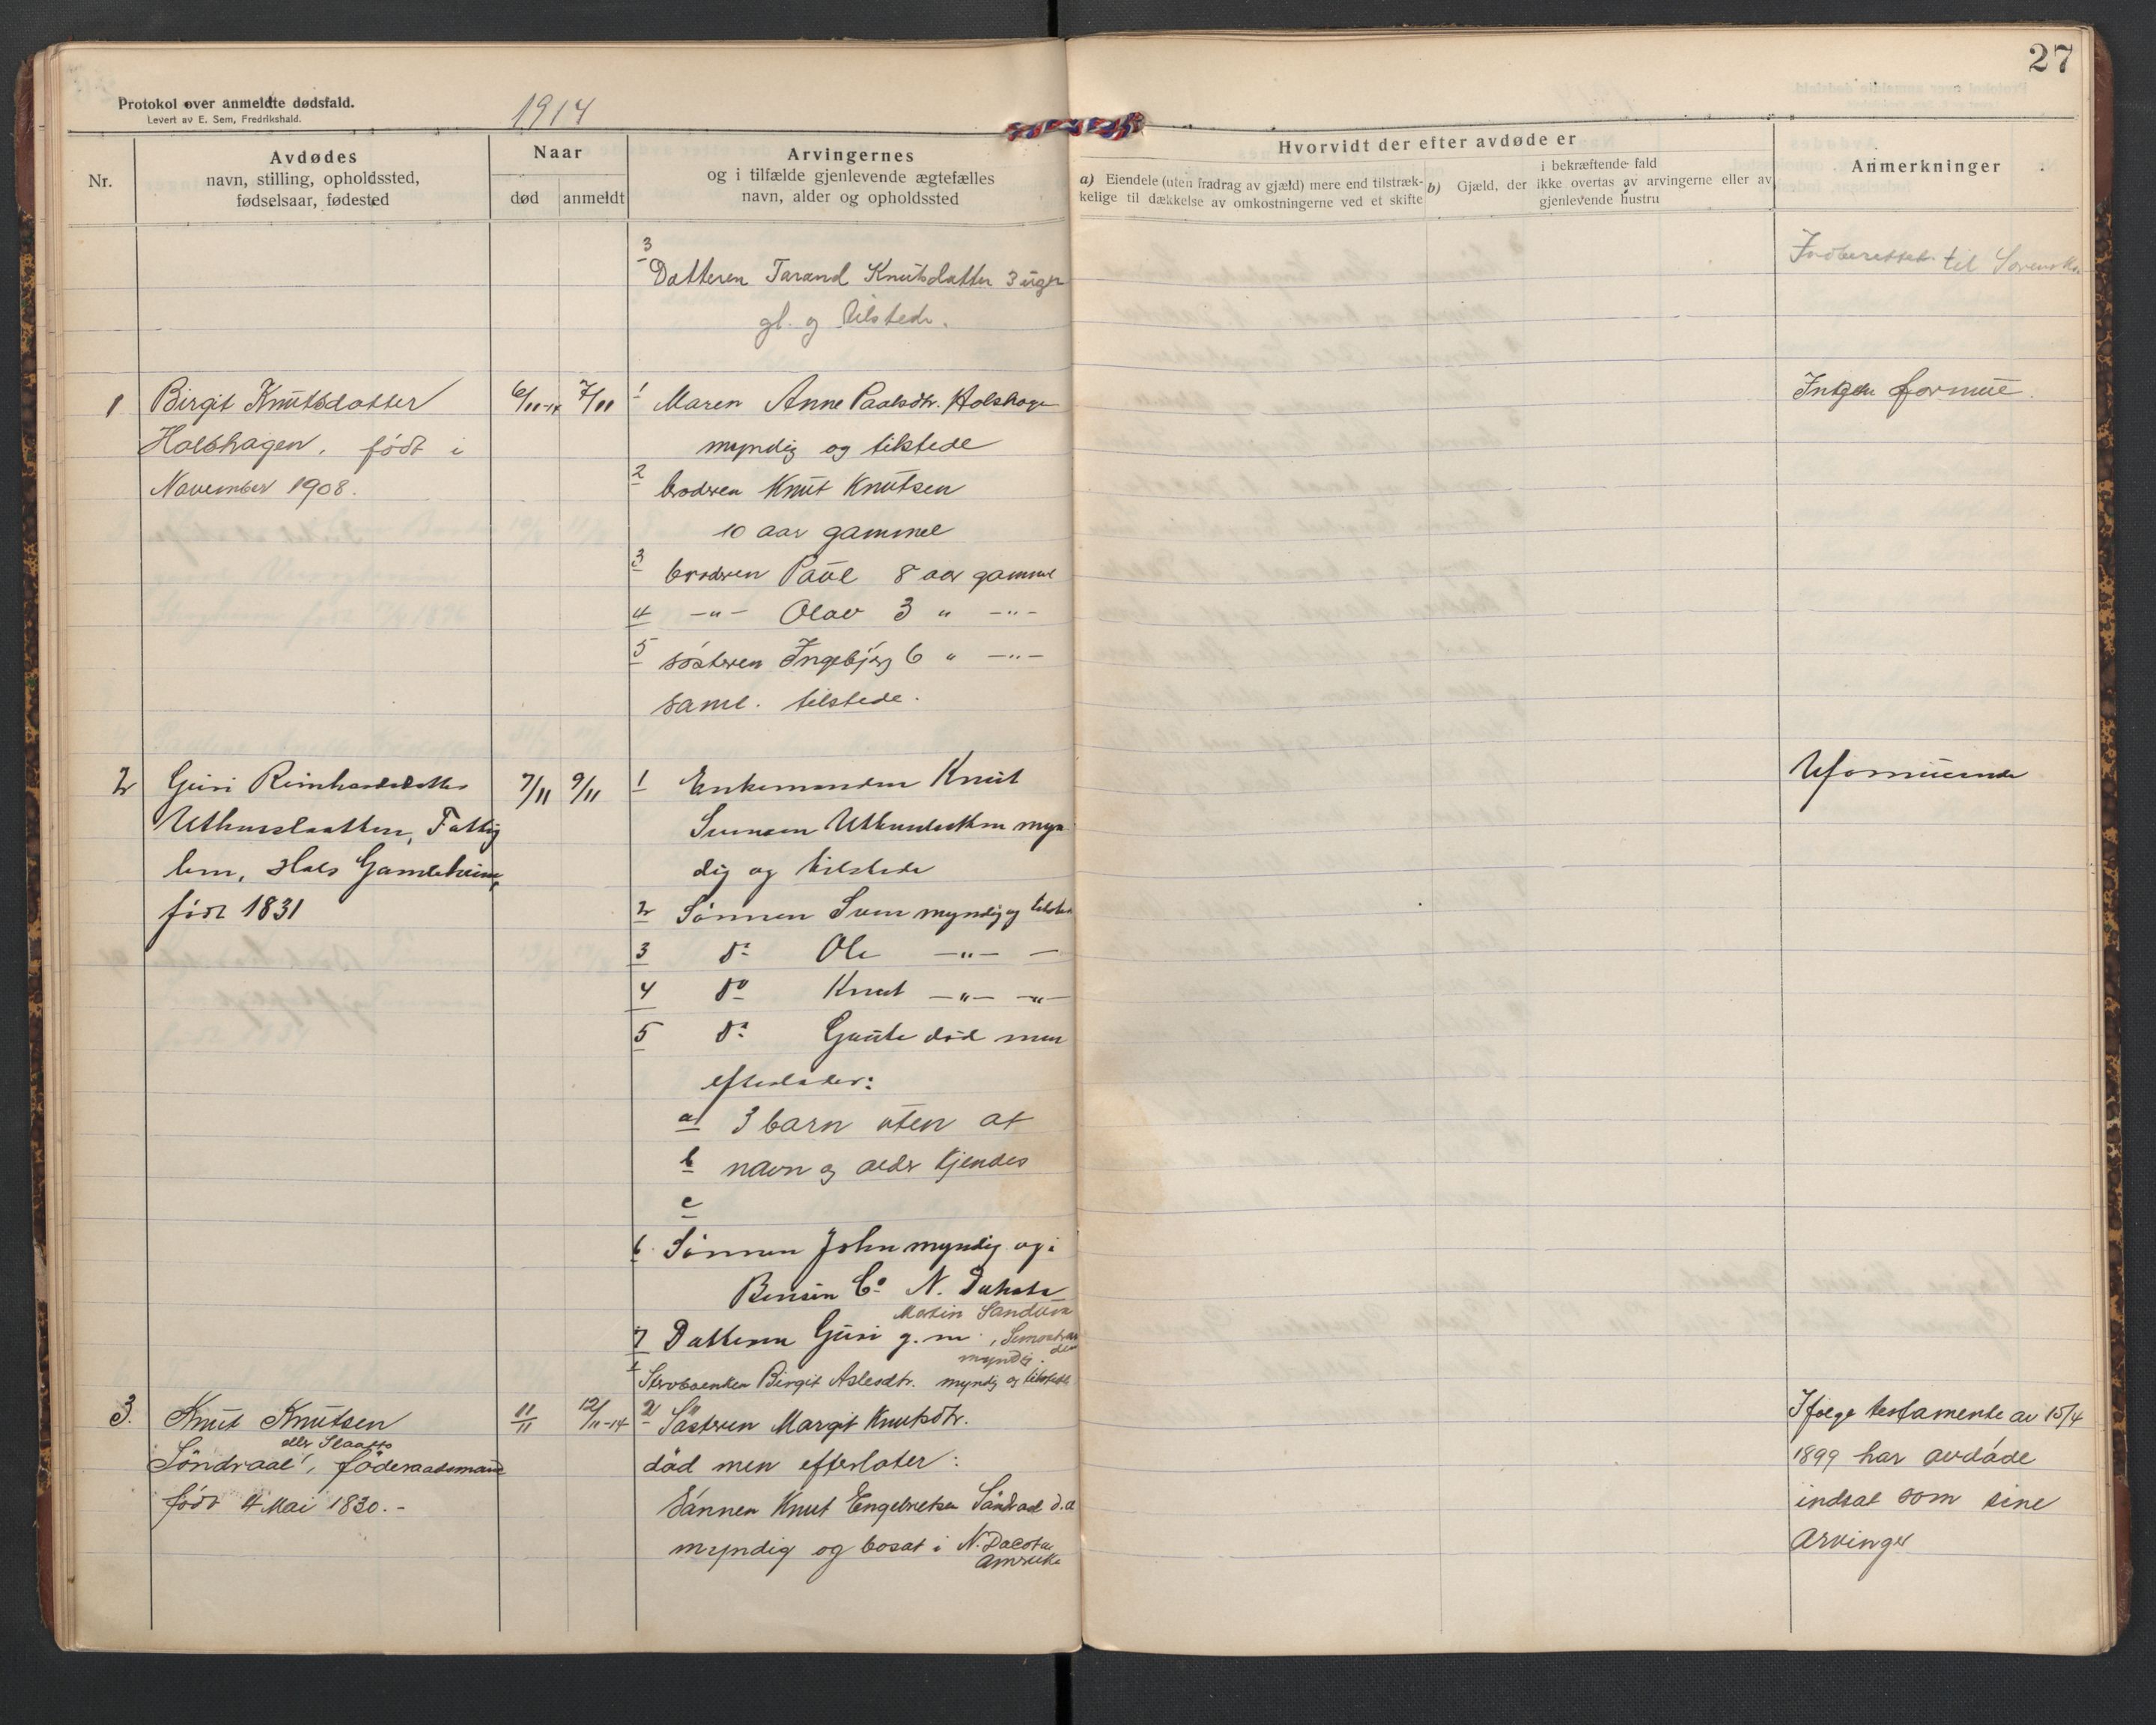 27
Protokol over anmeldte dødsfald.
Levert av E. Sem, Fredrikshald.
1914
Nr.
Avdødes
navn, stilling, opholdssted,
fødselsaar, fødested
Naar
død
anmeldt
Arvingernes
og i tilfælde gjenlevende ægtefælles
navn, alder og opholdssted
Hvorvidt der efter avdøde er
a) Eiendele (uten fradrag av gjæld) mere end tilstræk-
kelige til dækkelse av omkostningerne ved et skifte
i bekræftende fald
b) Gjæld, der ikke overtas av arvingerne eller av
gjenlevende hustru
Anmerkninger
3
Datteren Tarand Knutsdatter 3 uger
gl. og tilstede.
Indberettet til
1 Birgit Knutsdatter
Holshagen, født i
November 1908.
6/11-14 7/11
1 Maren Anne Paalsdtr. Holshagen
myndig og tilstede
2 broderen Knut Knutsen
10 aar gammel
3 broderen Paul 8 aar gammel
4 -"- Olav 3 " -"-
5 søsteren Ingebjørg 6 " -"-
saml. tilstede.
Ingen formue.
2 Guri Reinhardsdatter
Uthusslaatten, Fattig
lem, Hols Gamleheim,
født 1831
7/11 9/11
1 Enkemanden Knut
Svensen Uthusslaatten myn-
dig og tilstede
2 Sønnen Sven myndig og tilstede
3 do Ole -"- -
4 do Knut -"- -"-
5 do Gaute død men
efterlater:
a 3 barn uten at
b navn og alder kjendes
c
6 Sønnen John myndig og i
Bensen Co N. Dakota
Martin Sandum
7 Datteren Guri g. m.
myndig.
Uformuende
3. Knut Knutsen
eller Slaatto
Søndraal, føderaadsmand
født 4 Mai 1830.-
11/11 12/11-14
1 Birgit Aslesdtr. myndig og tilstede
2 Søsteren Margit Knutsdtr.
død men efterlater:
Sønnen Knut Engebretsen Søndraal d.a
myndig og bosat i N. Dacota
Amerika
Ifølge testamente av 15/4
1899 har avdøde
indsat som sine
Arvinger